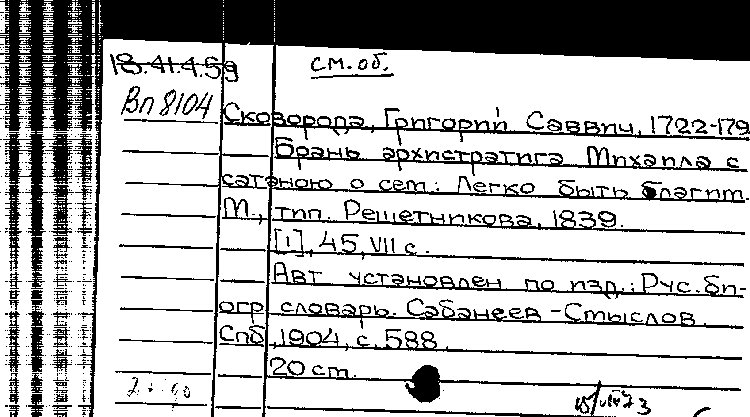 18.41.4.59 см. об.
Вп 8104
Сковорода, Григорий Саввич, 1722-179
Брань архистратига Михаила с
сатаною о сем: Легко быть благим.
М., тип. Решетникова, 1839.
[1], 45, VII с.
Авт установлен по изд.: Рус. би-
огр словарь. Сабанеев - Смыслов.
Спб, 1904, с. 588.
20 cm.